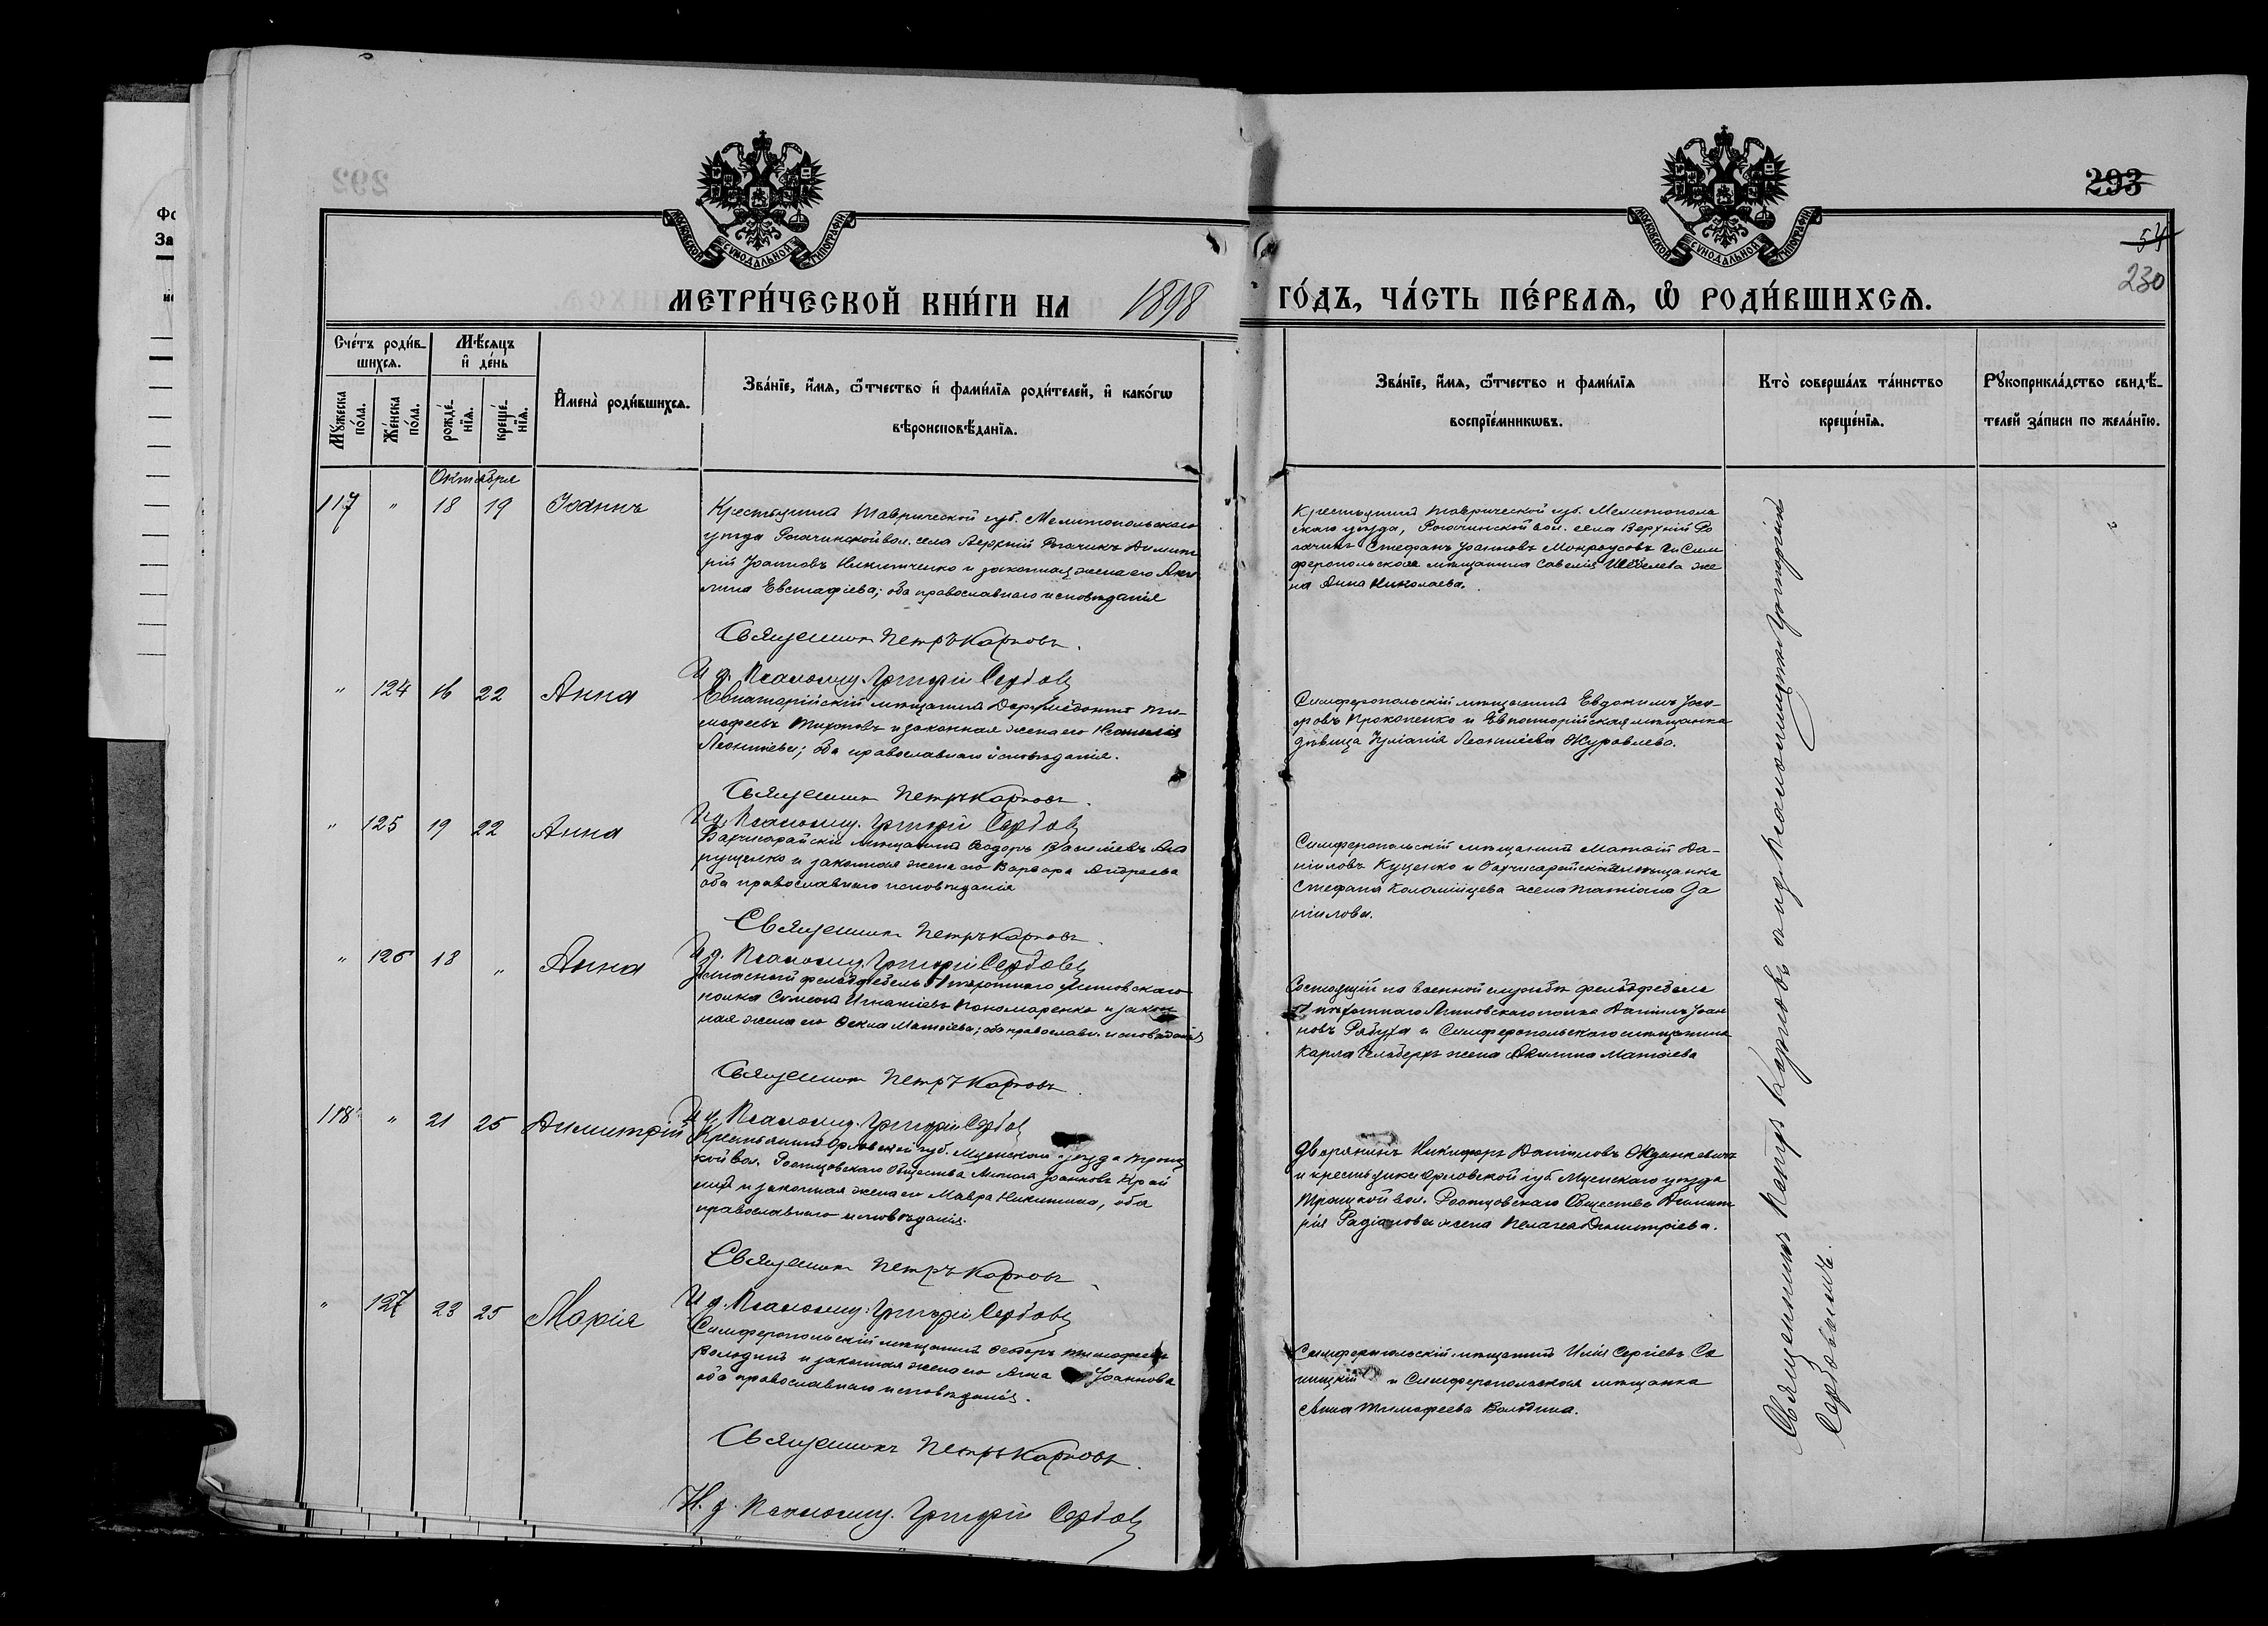 292
293
54
230
МОСКОВСКОЙ СѴНОДАЛЬНОЙ ТИПОГРАФІИ
МОСКОВСКОЙ СѴНОДАЛЬНОЙ ТИПОГРАФІИ
МЕТРИ́ЧЕСКОЙ КНИ́ГИ НА 1898 ГО́ДЪ, ЧА́СТЬ ПЕ́РВАѦ, Ѡ҆ РОДИ́ВШИХСѦ.
Сче́тъ роди́в-
шихсѧ.
Мꙋ́жеска
по́ла.
Же́нска
по́ла.
Мѣ́сѧцъ
и҆ де́нь
рожде́-
нїѧ.
креще́-
нїѧ.
И҆мена̀ роди́вшихсѧ.
Зва́нїе, и҆́мѧ, ѻ҆́тчество и҆ фами́лїѧ роди́телей, и҆ како́гѡ
вѣроисповѣ́данїѧ.
Зва́нїе, и҆́мѧ, ѻ҆́тчество и фами́лїѧ
воспрїе́мникѡвъ.
Кто̀ соверша́лъ та́инство
креще́нїѧ.
Рꙋкоприкла́дство свидѣ́-
телей за́писи по жела́нїю.
Октября
117 " 18 19 Іоаннъ
Крестьянинъ Таврической губ. Мелитопольскаго
уѣзда Рогачинской вол. села Верхній Рогачикъ Димит
рій Іоанновъ Никитченко и законная жена его Аки
лина Евстафіева; оба православнаго исповѣданія
Священникъ Петръ Карповъ.
И д. Псаломщ. Григорій Сербовъ
Крестьянинъ Таврической губ. Мелитополь
скаго уѣзда, Рогачинской вол. села Верхній Ро
гачикъ Стефанъ Іоанновъ Мокроусовъ и Сим
феропольскаго мѣщанина Савелія жe
на Анна Николаева.
" 124 16 22 Анна
Евпаторійскій мѣщанинъ Ти-
мофеевъ Тихоновъ и законная жена его Наталія
Леонтіева; оба православнаго исповѣданія.
Священникъ Петръ Карповъ.
И д. Псаломщ. Григорій Сербовъ
Симферопольскій мѣщанинъ Евдокимъ Іоси-
фовъ Прокопенко и Евпаторійская мѣщанка
дѣвица Іуліанія Леонтіева Журавлева.
" 125 19 22 Анна
Бахчисарайскій мѣщанинъ Ѳеодоръ Василіевъ
и законная жена его Варвара Андреева
оба православнаго исповѣданія
Священникъ Петръ Карповъ.
И д. Псаломщ. Григорій Сербовъ
Симферопольскій мѣщанинъ Матѳій Да-
ніиловъ Куценко и Бахчисарайскаго мѣщанина
Стефана Коломійцева жена Татіана Да
ніилова.
" 126 18 " Анна
Запасный фельдфебель пѣхотнаго Литовскаго
полка Симеонъ Игнатіевъ Пономаренко и закон
ная жена его Ѳекла Матѳіева; оба православн. исповѣданія
Священникъ Петръ Карповъ.
И д. Псаломщ. Григорій Сербовъ
Состоящій на военной службѣ фельдфебель
пѣхотнаго Литовскаго полка Даніилъ Іоан
новъ Рябуха и Симферопольскаго мѣщанина
Карла жена Акилина Матѳіева
118 " 21 25 Димитрій
Крестьянинъ Орловской губ. Мценскаго уѣзда Троиц
кой вол. Общества Іоанновъ
и законная жена его Мавра Никитина, оба
православнаго исповѣданія.
Священникъ Петръ Карповъ.
И д. Псаломщ. Григорій Сербовъ
Дворянинъ Никифоръ Даніиловъ
и крестьянина Орловской губ. Мценскаго уѣзда
Троицкой вол. Общества Димит
рія Радіонова жена Пелагея Димитріева.
" 127 23 25 Марія
Симферопольскій мѣщанинъ Ѳеодоръ Тимофеевъ
Володинъ и законная жена его Анна Іоаннова
оба православнаго исповѣданія.
Священникъ Петръ Карповъ.
И. д. Псаломщ. Григорій Сербовъ
Симферопольскій мѣщанинъ Илія Сергіевъ Са
ницкій и Симферопольская мѣщанка
Анна Тимофеева Володина.
Священникъ Петръ Карповъ и д. псаломщика Григорій
Сербовымъ.